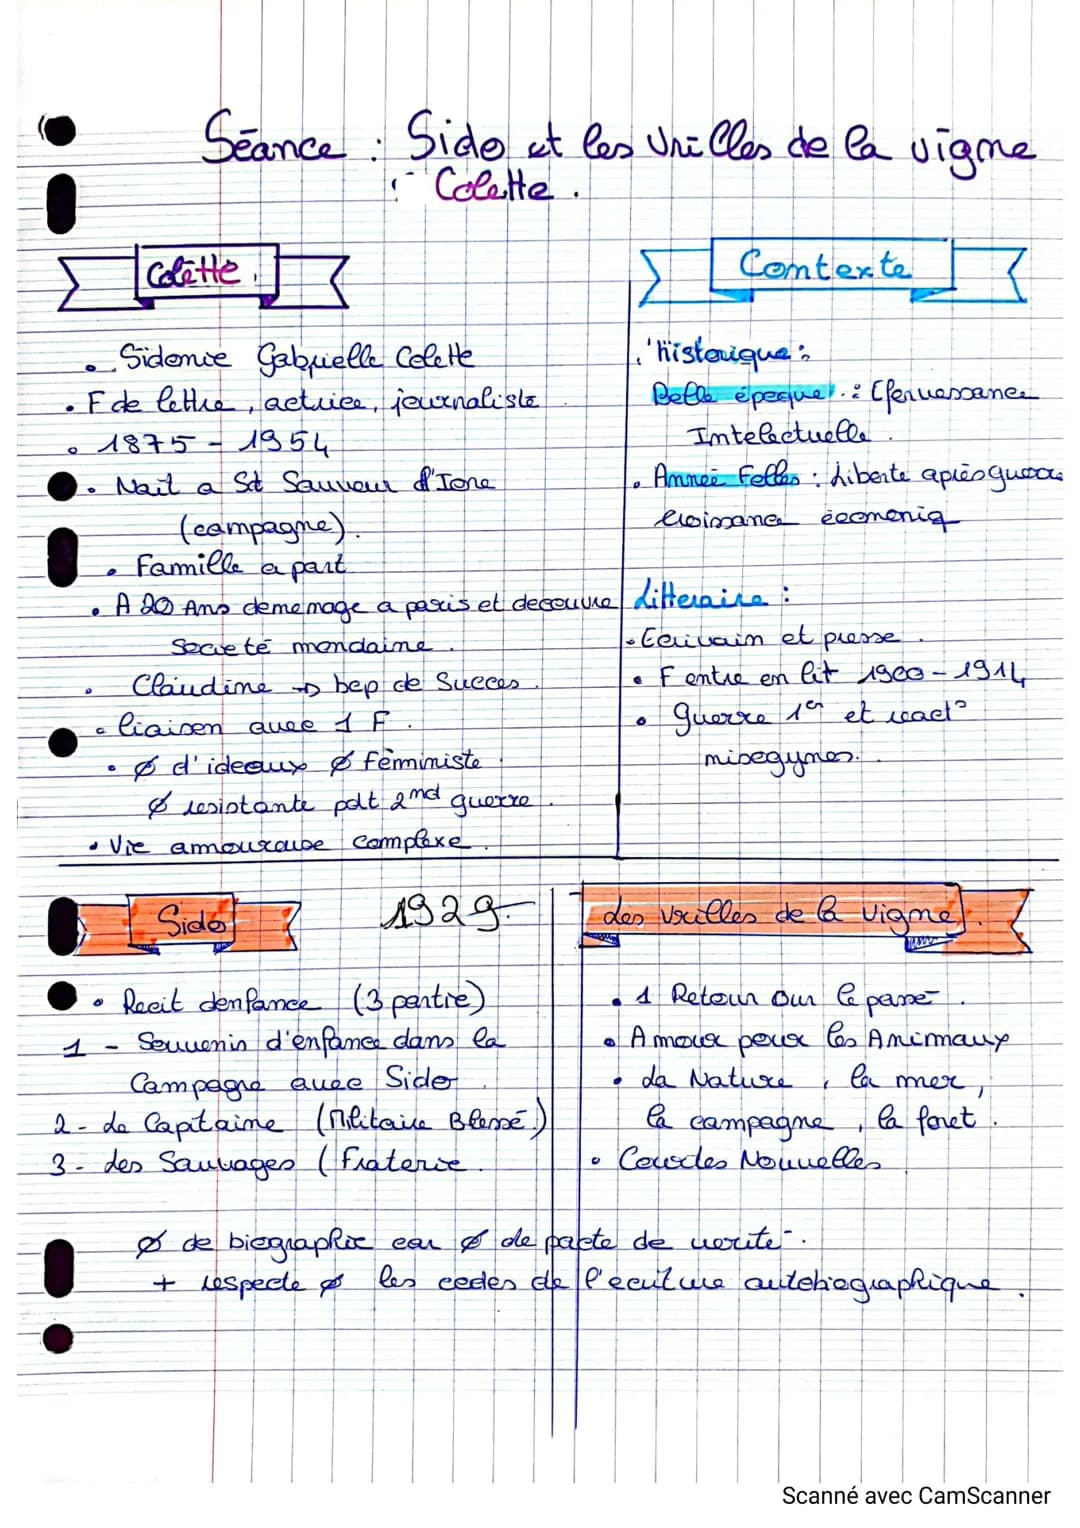 Séance : Sido et les Vrilles de la vigne
: Colette.
Colette.
• Sidonie Gabrielle Colette
• F de lettre, actrice, journaliste
• 1873 - 1954
• Nait a St Sauveur d'Ione
(campagne).
• Famille a part
• A 20 Ans demenage a paris et decouvre
Societé mondaine.
• Claudine → bcp de Succes.
• liaison avec 1 F.
• Ø d'ideaux Ø féministe
Ø resistante pdt 2nd guerre.
• Vie amoureuse complexe.
Contexte
• historique :
Belle époque : Efervessance
Intelectuelle.
• Année Folles : Liberte après guerre
Croissance économiq
Litteraire :
• Ecrivain et presse.
• F entre en lit 1900-1914
• guerre 1er et react°
misogynes.
Sido
1929.
• Recit denfance (3 partie)
1 - Souvenir d'enfance dans la
Campagne avec Sido.
2 - Le Capitaine (Militaire Blessé)
3 - Les Sauvages (Fraterie.
Les vrilles de la vigne.
• 1 Retour sur le passé.
• Amour pour les Animaux
• La Nature, la mer,
la campagne, la foret.
• Courtes Nouvelles
Ø de biographie car Ø de pacte de verité.
+ respecte Ø les codes de l'ecriture autobiographique.
Scanné avec CamScanner